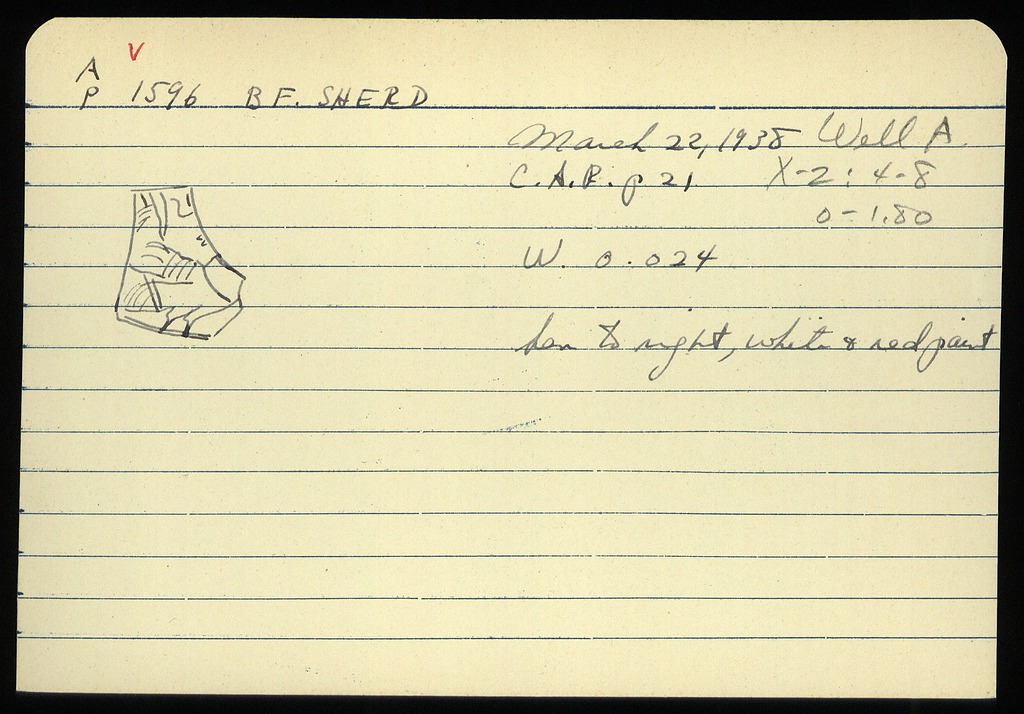 A V
P 1596 B F. SHERD
March 22, 1938 Well A
C. A. R. p 21 X-2: 4-8
0-1.80
W. 0.024
hen to right, white & red paint